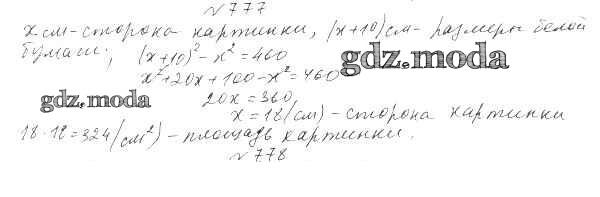 № 777
x см - сторона картинки, (x+10) см - размеры белой
бумаги; (x+10)² - x² = 460
gdz.moda
x² + 20x + 100 - x² = 460
gdz.moda
20x = 360
x = 18 (см) - сторона картинки
18 · 18 = 324 (см²) - площадь картинки.
№ 778